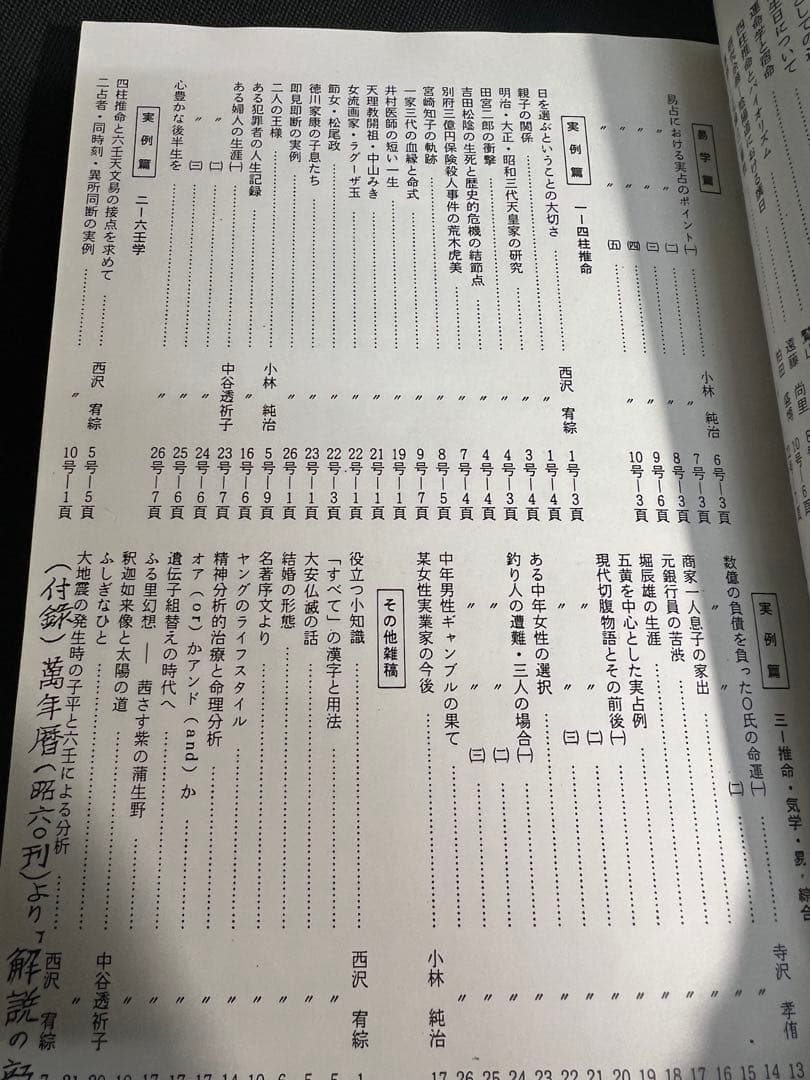 易学篇
易占における実占のポイント㈠……小林 純治 6号―3頁
〃 ㈡……〃 7号―3頁
〃 ㈢……〃 8号―3頁
〃 ㈣……〃 9号―6頁
〃 ㈤……〃 10号―3頁
実例篇 一―四柱推命
日を選ぶということの大切さ……西沢 宥綜 1号―3頁
親子の関係……〃 1号―4頁
明治・大正・昭和三代天皇家の研究……〃 3号―4頁
田宮二郎の衝撃……〃 4号―3頁
吉田松陰の生死と歴史的危機の結節点……〃 4号―4頁
別府三億円保険殺人事件の荒木虎美……〃 7号―4頁
宮崎知子の軌跡……〃 8号―5頁
一家三代の血縁と命式……〃 9号―7頁
井村医師の短い一生……〃 19号―1頁
天理教開祖・中山みき……〃 21号―1頁
女流画家・ラグーザ玉……〃 22号―1頁
節女・松尾政……〃 22号―3頁
徳川家康の子息たち……〃 23号―1頁
即見即断の実例……〃 26号―1頁
二人の王様……小林 純治 5号―9頁
ある犯罪者の人生記録……〃 16号―6頁
ある婦人の生涯㈠……中谷透祈子 23号―7頁
〃 ㈡……〃 24号―6頁
〃 ㈢……〃 25号―6頁
心豊かな後半生を……〃 26号―7頁
実例篇 二―六壬学
四柱推命と六壬天文易の接点を求めて……西沢 宥綜 5号―5頁
二占者・同時刻・異所同断の実例……〃 10号―1頁
実例篇 三―推命・気学・易・綜合
数億の負債を負ったO氏の命運㈠……寺沢 孝侑
〃 ㈡……〃
商家一人息子の家出……〃
元銀行員の苦渋……〃
堀辰雄の生涯……〃
五黄を中心とした実占例……〃
現代切腹物語とその前後㈠……〃
〃 ㈡……〃
〃 ㈢……〃
ある中年女性の選択……〃
釣り人の遭難・三人の場合㈠……〃
〃 ㈡……〃
〃 ㈢……〃
中年男性ギャンブルの果て……〃
某女性実業家の今後……小林 純治
その他雑稿
役立つ小知識……西沢 宥綜
「すべて」の漢字と用法……〃
大安仏滅の話……〃
結婚の形態……〃
名著序文より……〃
ヤングのライフスタイル……〃
精神分析的治療と命理分析……〃
オア(or)かアンド(and)か……〃
遺伝子組替えの時代へ……〃
ふる里幻想 ― 茜さす紫の蒲生野……〃
釈迦如来像と太陽の道……〃
ふしぎなひと……中谷透祈子
大地震の発生時の子平と六壬による分析……〃
西沢 宥綜
(付録)萬年暦(昭六〇刊)より「解説の